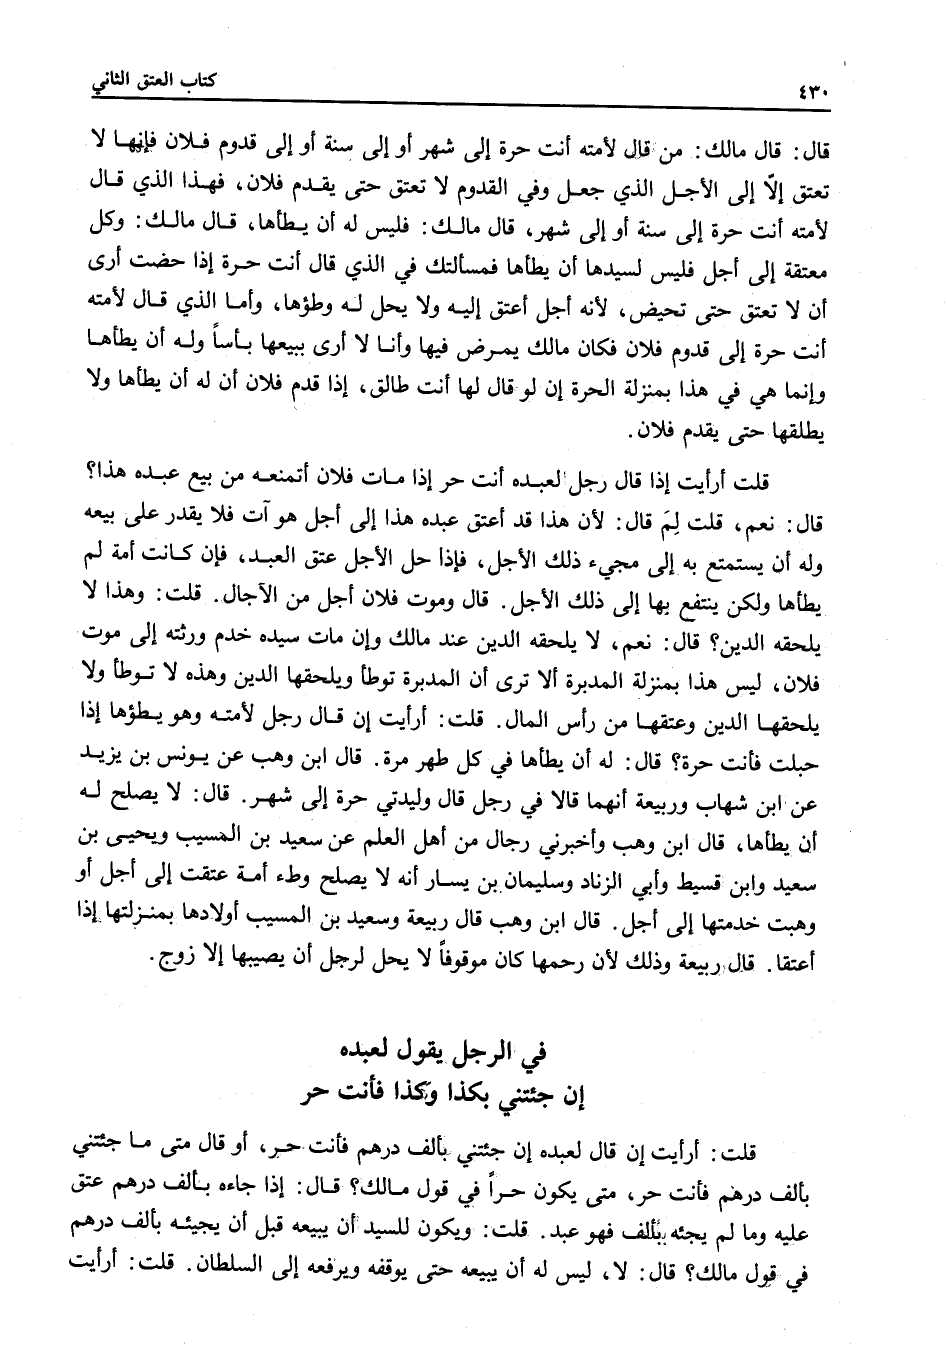 ٤٣٠
كتاب العتق الثاني
قال: قال مالك: من قال لأمته أنت حرة إلى شهر أو إلى سنة أو إلى قدوم فلان فإنها لا
تعتق إلّا إلى الأجل الذي جعل وفي القدوم لا تعتق حتى يقدم فلان، فهذا الذي قال
لأمته أنت حرة إلى سنة أو إلى شهر، قال مالك: فليس له أن يطأها، قال مالك: وكل
معتقة إلى أجل فليس لسيدها أن يطأها فمسألتك في الذي قال أنت حرة إذا حضت أرى
أن لا تعتق حتى تحيض، لأنه أجل أعتق إليه ولا يحل له وطؤها، وأما الذي قال لأمته
أنت حرة إلى قدوم فلان فكان مالك يمرض فيها وأنا لا أرى ببيعها بأساً وله أن يطأها
وإنما هي في هذا بمنزلة الحرة إن لو قال لها أنت طالق، إذا قدم فلان أن له أن يطأها ولا
يطلقها حتى يقدم فلان.
قلت أرأيت إذا قال رجل لعبده أنت حر إذا مات فلان أتمنعه من بيع عبده هذا؟
قال: نعم، قلت لِمَ قال: لأن هذا قد أعتق عبده هذا إلى أجل هو آت فلا يقدر على بيعه
وله أن يستمتع به إلى مجيء ذلك الأجل، فإذا حل الأجل عتق العبد، فإن كانت أمة لم
يطأها ولكن ينتفع بها إلى ذلك الأجل. قال وموت فلان أجل من الآجال. قلت: وهذا لا
يلحقه الدين؟ قال: نعم، لا يلحقه الدين عند مالك وإن مات سيده خدم ورثته إلى موت
فلان، ليس هذا بمنزلة المدبرة ألا ترى أن المدبرة توطأ ويلحقها الدين وهذه لا توطأ ولا
يلحقها الدين وعتقها من رأس المال. قلت: أرأيت إن قال رجل لأمته وهو يطؤها إذا
حبلت فأنت حرة؟ قال: له أن يطأها في كل طهر مرة. قال ابن وهب عن يونس بن يزيد
عن ابن شهاب وربيعة أنهما قالا في رجل قال وليدتي حرة إلى شهر. قال: لا يصلح له
أن يطأها، قال ابن وهب وأخبرني رجال من أهل العلم عن سعيد بن المسيب ويحيى بن
سعيد وابن قسيط وأبي الزناد وسليمان بن يسار أنه لا يصلح وطء أمة عتقت إلى أجل أو
وهبت خدمتها إلى أجل. قال ابن وهب قال ربيعة وسعيد بن المسيب أولادها بمنزلتها إذا
أعتقا. قال ربيعة وذلك لأن رحمها كان موقوفاً لا يحل لرجل أن يصيبها إلا زوج.
في الرجل يقول لعبده
إن جئتني بكذا وكذا فأنت حر
قلت: أرأيت إن قال لعبده إن جئتني بألف درهم فأنت حر، أو قال متى ما جئتني
بألف درهم فأنت حر، متى يكون حراً في قول مالك؟ قال: إذا جاءه بألف درهم عتق
عليه وما لم يجئه بألف فهو عبد. قلت: ويكون للسيد أن يبيعه قبل أن يجيئه بألف درهم
في قول مالك؟ قال: لا، ليس له أن يبيعه حتى يوقفه ويرفعه إلى السلطان. قلت: أرأيت